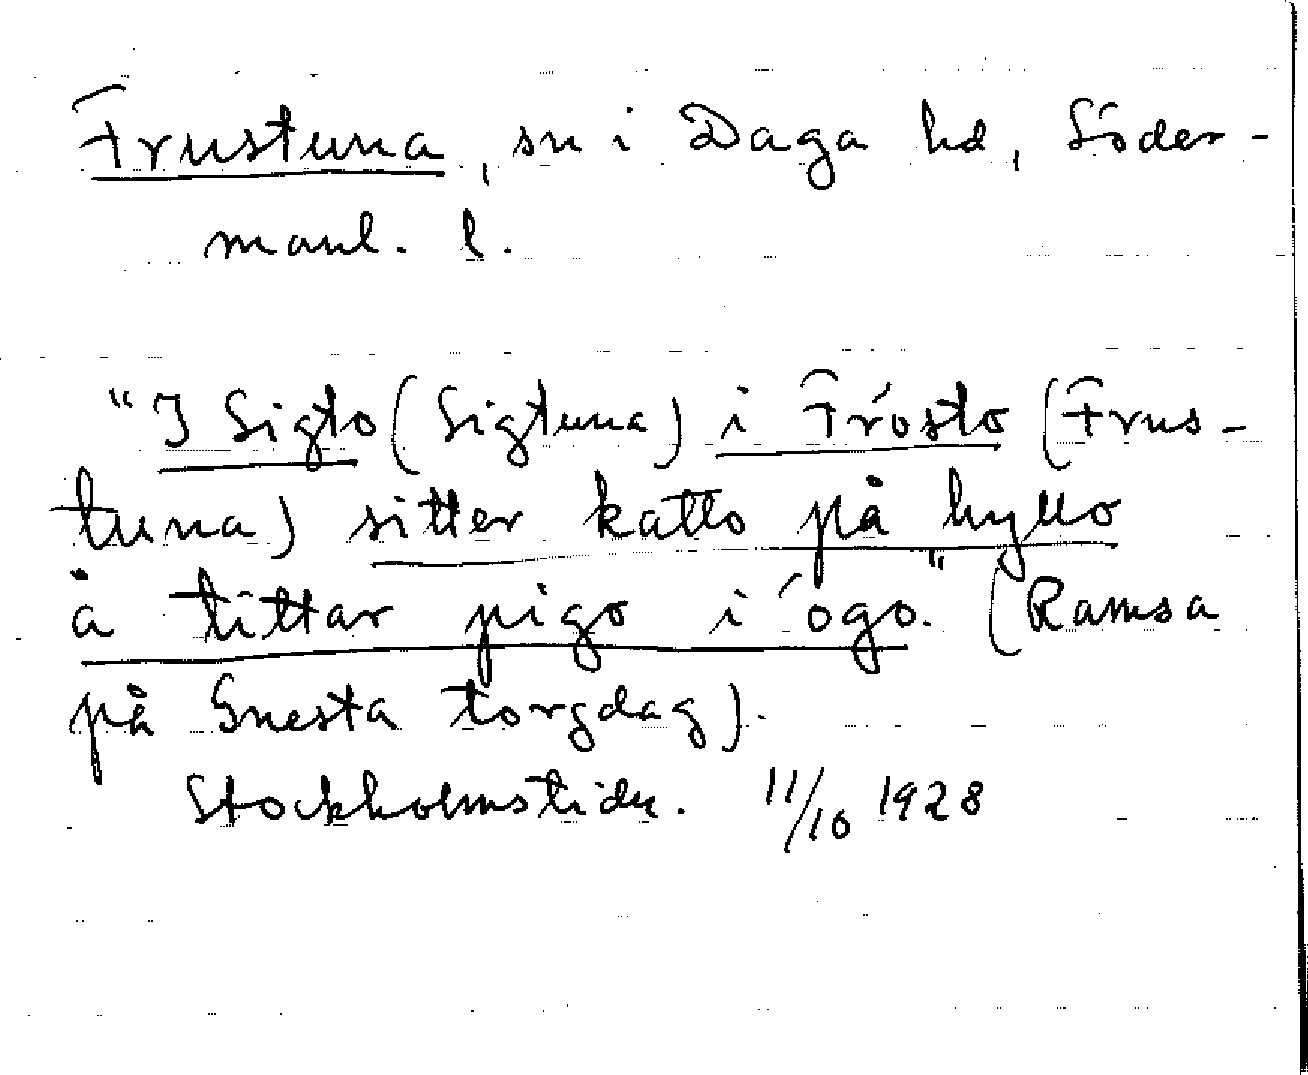 Frustuna, sn i Daga hd, Söder-
manl. l.
"I Sigto (Sigtuna) i Frosto (Frus-
tuna) sitter katto på hyllo
å tittar pigo i ögo." (Ramsa
på Gnesta torgdag).
Stockholmstidn. 11/10 1928